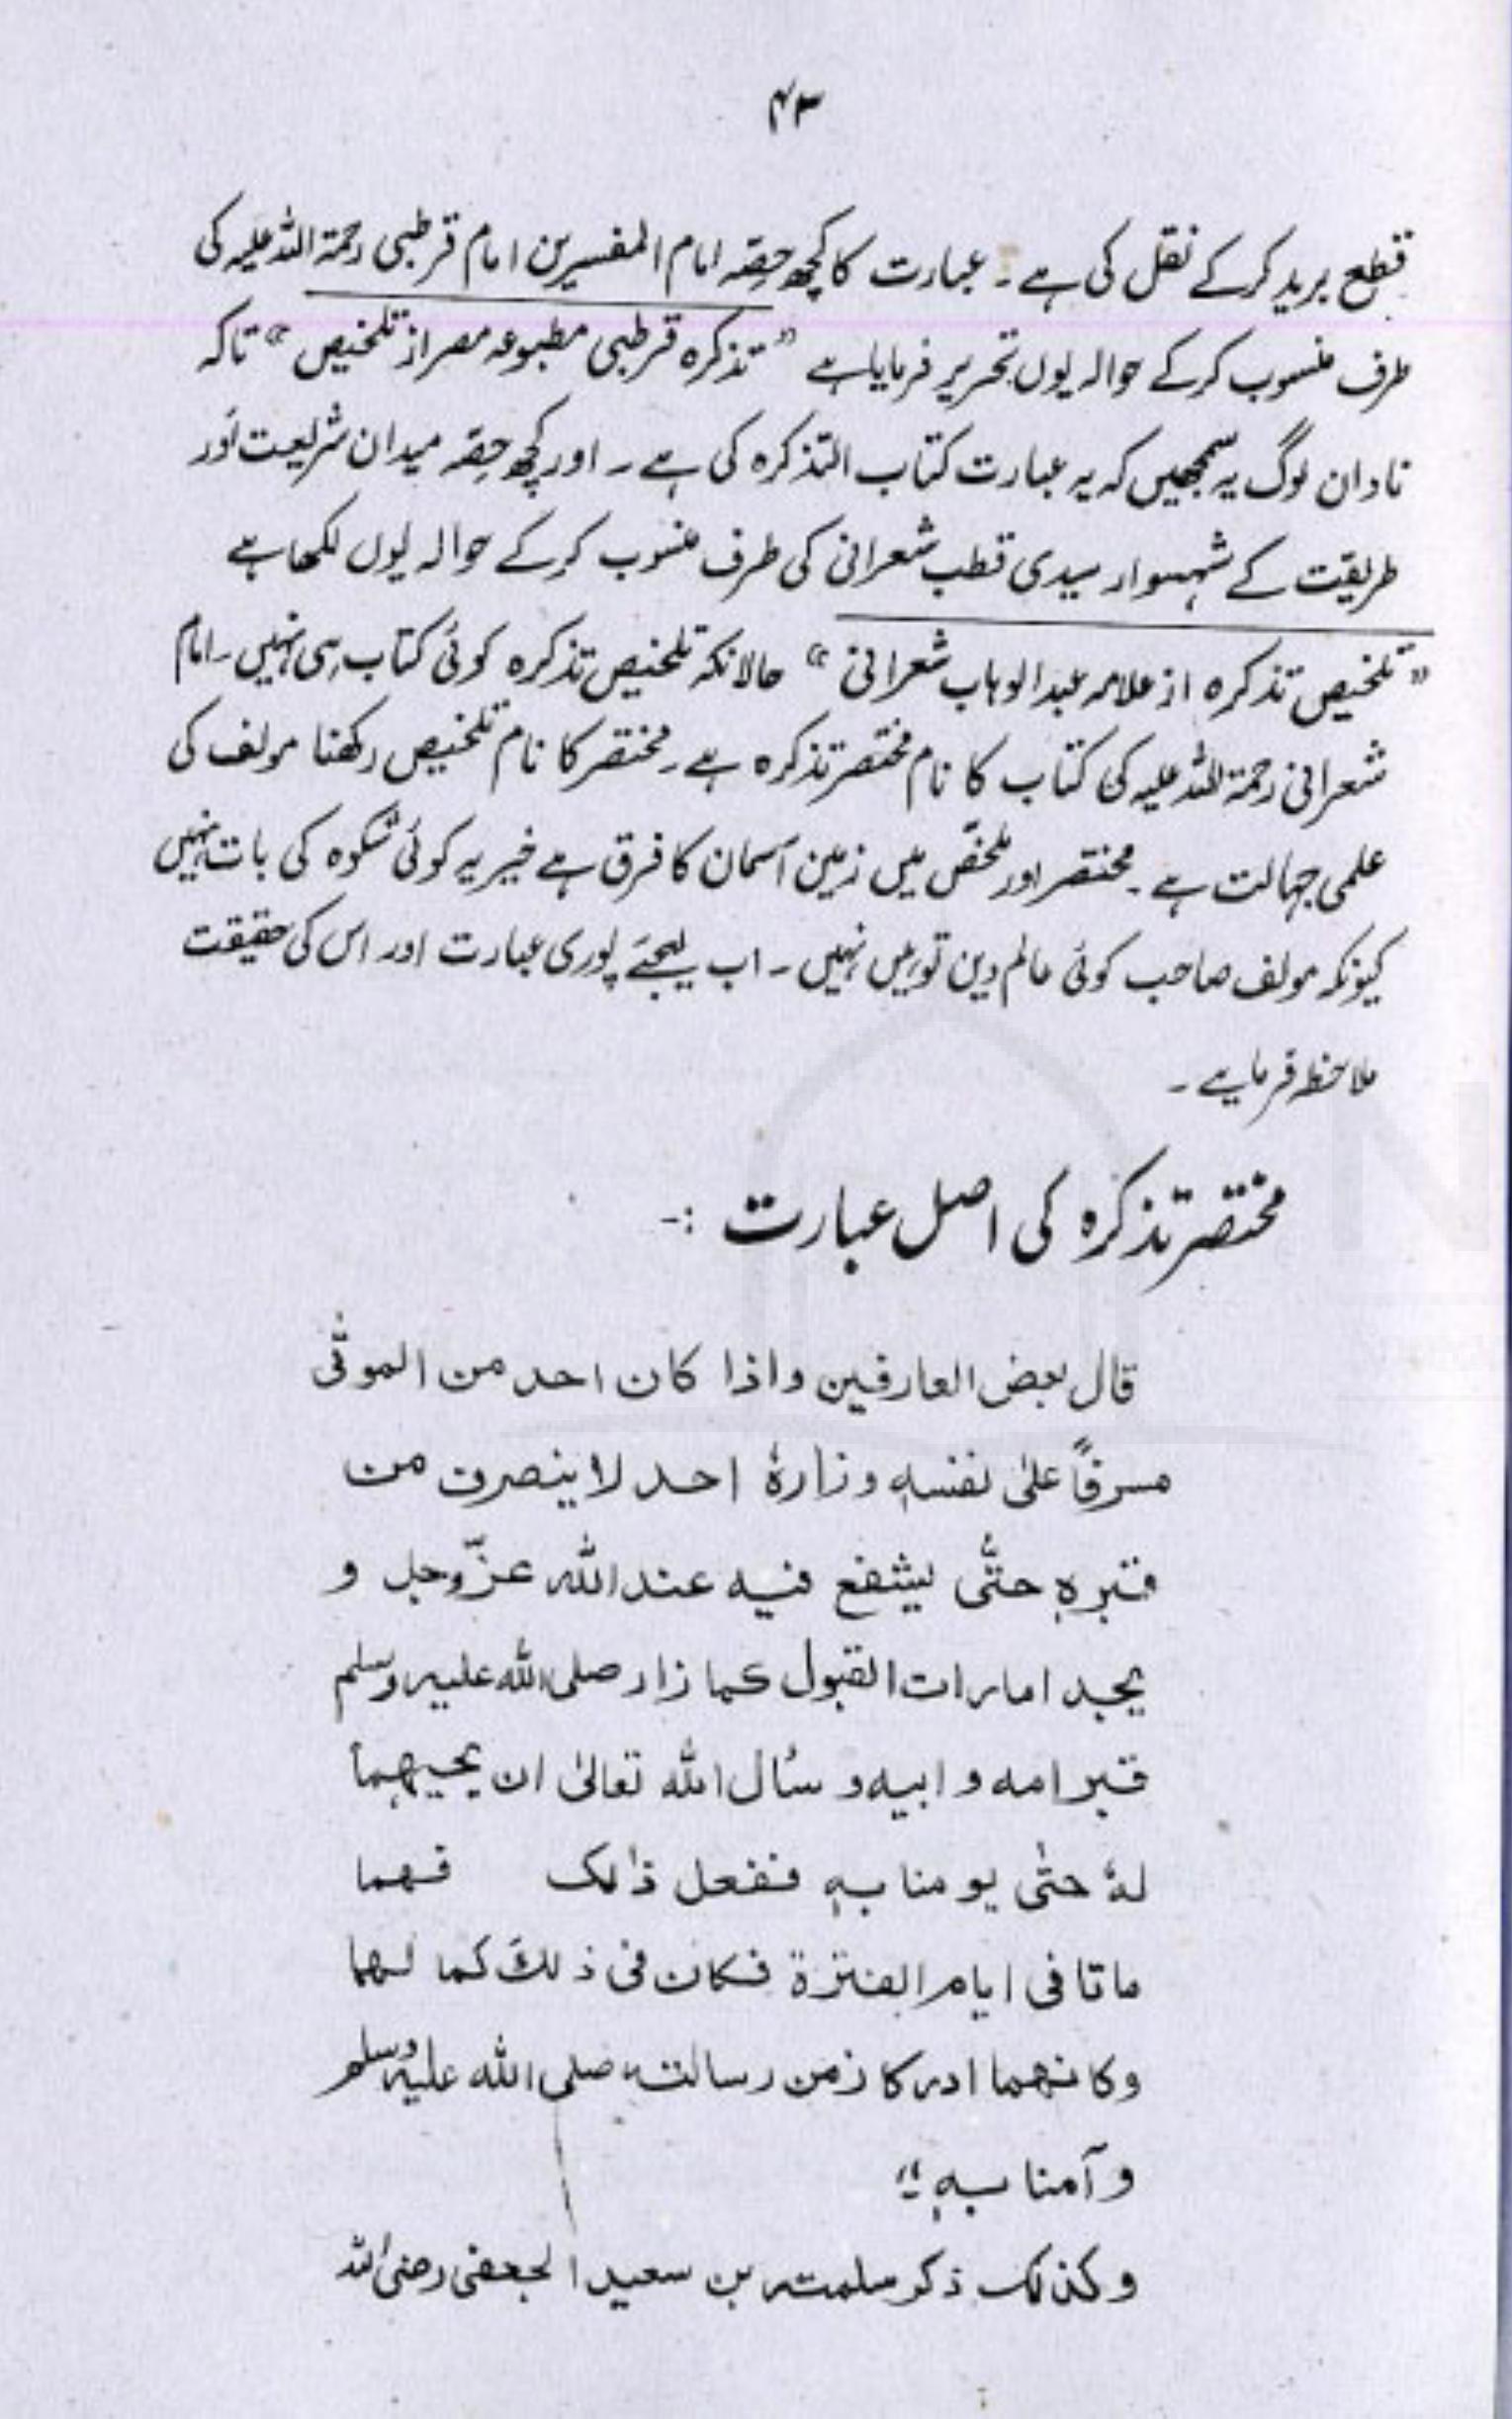 ۴۳
قطع برید کرکے نقل کی ہے۔ عبارت کا کچھ حصّہ امام المفسیرین امام قرطبی رحمۃ اللہ علیہ کی
طرف منسوب کرکے حوالہ یوں تحریر فرمایا ہے "تذکرہ قرطبی مطبوعہ مصر از تلخیص" تاکہ
نادان لوگ یہ سمجھیں کہ یہ عبارت کتاب التذکرہ کی ہے۔ اور کچھ حصّہ میدان شریعت اور
طریقت کے شہسوار سیدی قطب شعرانی کی طرف منسوب کرکے حوالہ یوں لکھا ہے
"تلخیص تذکرہ از علامہ عبدالوہاب شعرانی" حالانکہ تلخیص تذکرہ کوئی کتاب ہی نہیں۔ امام
شعرانی رحمۃ اللہ علیہ کی کتاب کا نام مختصر تذکرہ ہے۔ مختصر کا نام تلخیص رکھنا مولف کی
علمی جہالت ہے۔ مختصر اور ملخّص میں زمین آسمان کا فرق ہے خیر یہ کوئی شکوہ کی بات نہیں
کیونکہ مولف صاحب کوئی عالم دین تو ہیں نہیں۔ اب لیجئے پوری عبارت اور اس کی حقیقت
ملاحظہ فرمایے۔
مختصر تذکرہ کی اصل عبارت :-
قال بعض العارفین واذا کان احد من الموتٰی
مسرفاً علیٰ نفسہٖ وزارہٗ احد لا ینصرف من
قبرہٖ حتّٰی یشفع فیہ عند اللہ عزّوجل و
یجد امارات القبول کما زار صلی اللہ علیہ وسلم
قبر امہ و ابیہ و سأل اللہ تعالیٰ ان یحییہما
لہٗ حتٰی یومنا بہٖ ففعل ذالک فہما
ماتا فی ایام الفترۃ فکان فی ذلک کما لہما
وکانہما ادرکا زمن رسالتہ صلی اللہ علیہ وسلم
وآمنا بہٖ"
وکذلک ذکر سلمتہ بن سعید الجعفی رضی اللہ